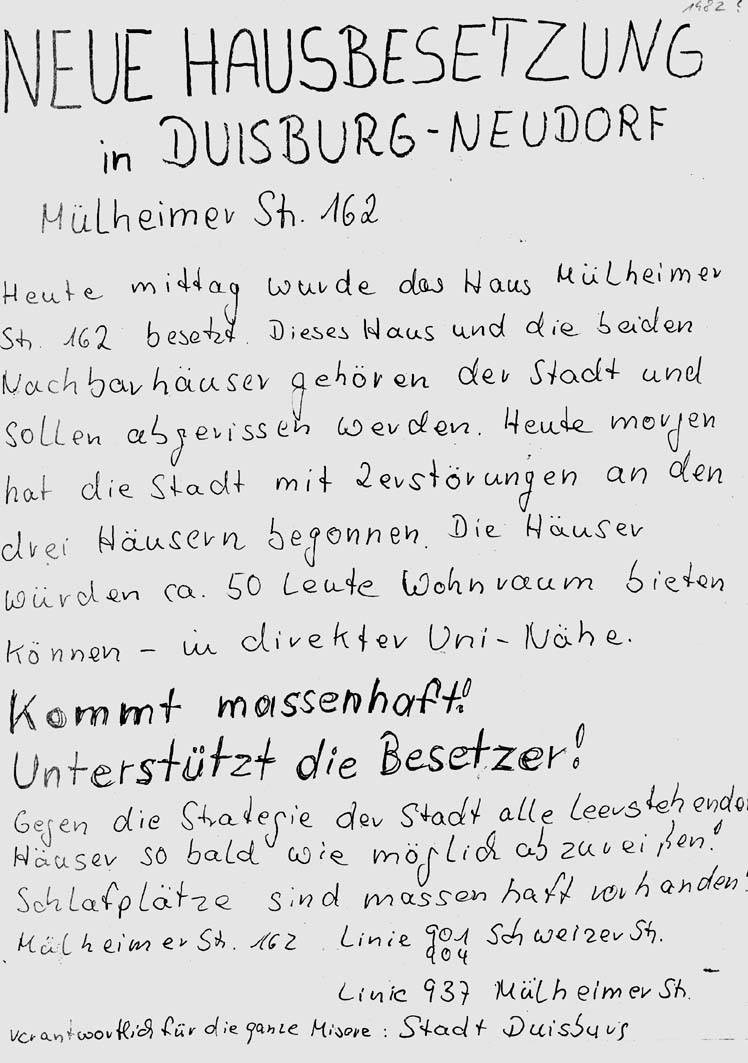 1982?
NEUE HAUSBESETZUNG
in DUISBURG-NEUDORF
Mülheimer Str. 162
Heute mittag wurde das Haus Mülheimer
Str. 162 besetzt. Dieses Haus und die beiden
Nachbarhäuser gehören der Stadt und
sollen abgerissen werden. Heute morgen
hat die Stadt mit Zerstörungen an den
drei Häusern begonnen. Die Häuser
würden ca. 50 Leute Wohnraum bieten
können – in direkter Uni-Nähe.
Kommt massenhaft!
Unterstützt die Besetzer!
Gegen die Strategie der Stadt alle leerstehenden
Häuser so bald wie möglich abzureißen!
Schlafplätze sind massenhaft vorhanden!
Mülheimer Str. 162 Linie 901 Schweizer Str.
904
Linie 937 Mülheimer Str.
Verantwortlich für die ganze Misere: Stadt Duisburg